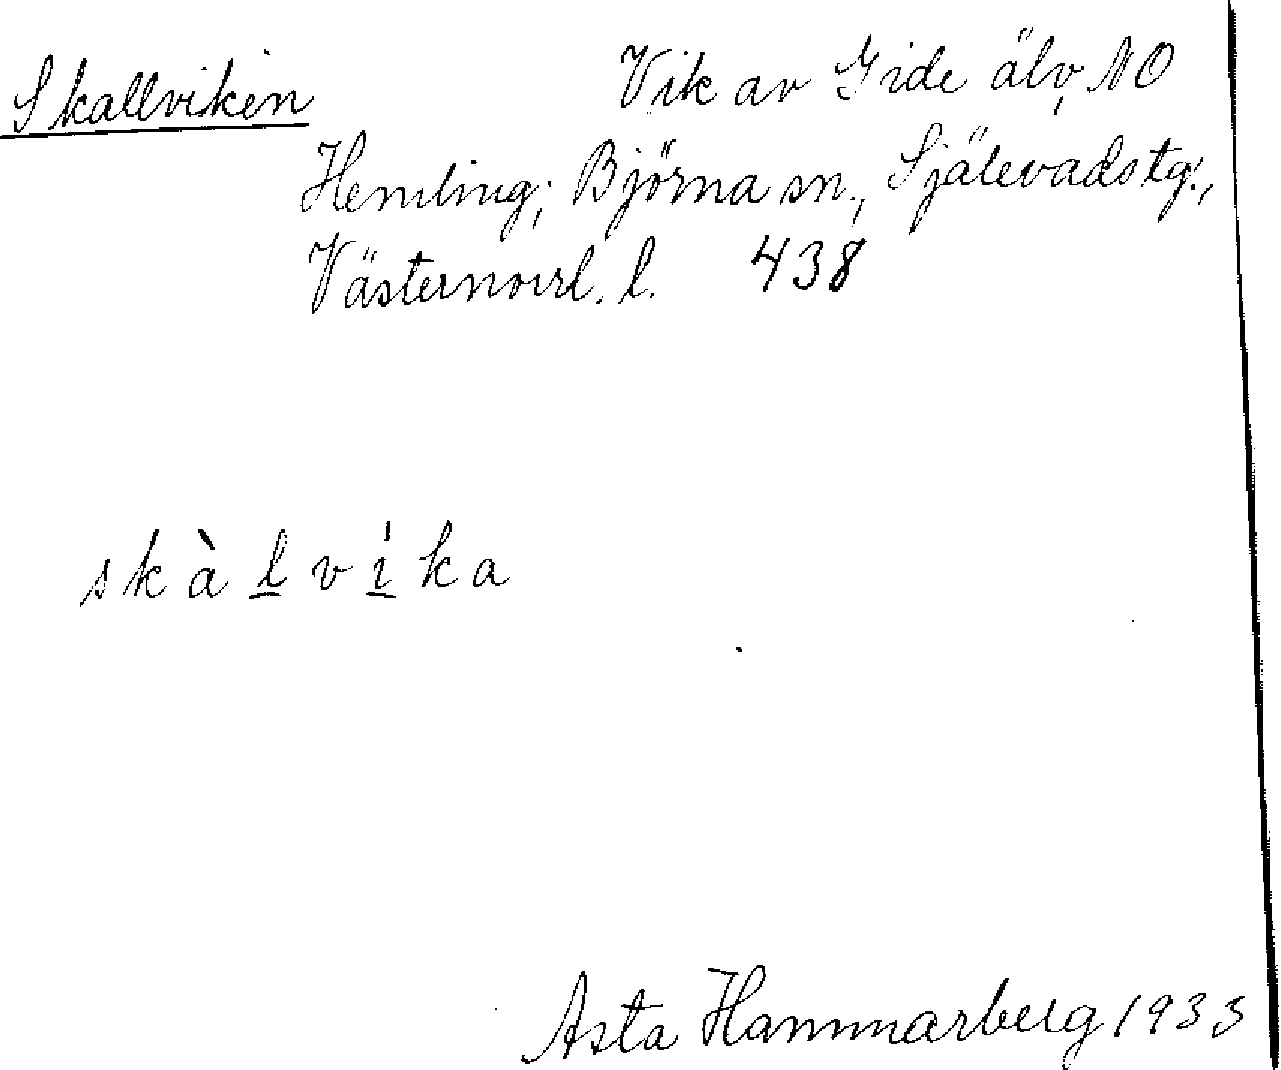 Skallviken Vik av Gide älv, NO
Hemling; Björna sn., Själevads tg.,
Västernorrl. l. 438
skàl̲ví̲ka
Asta Hammarberg 1933